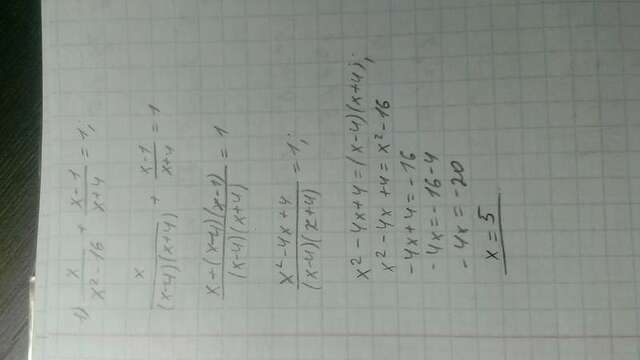 1) x/(x²-16) + (x-1)/(x+4) = 1;
x/((x-4)(x+4)) + (x-1)/(x+4) = 1
(x+(x-4)(x-1))/((x-4)(x+4)) = 1
(x²-4x+4)/((x-4)(x+4)) = 1;
x²-4x+4=(x-4)(x+4);
x²-4x+4=x²-16
-4x+4=-16
-4x=-16-4
-4x=-20
x=5